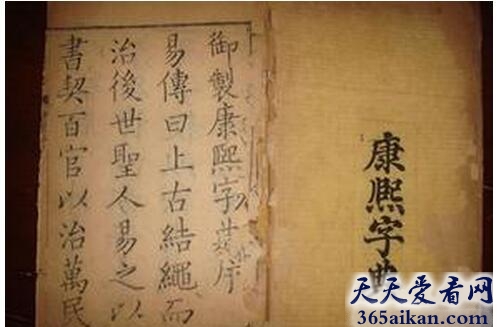 御製康熙字典序
易傳曰上古結繩而
治後世聖人易之以
書契百官以治萬民
康熙字典
天天爱看网
365aikan.com